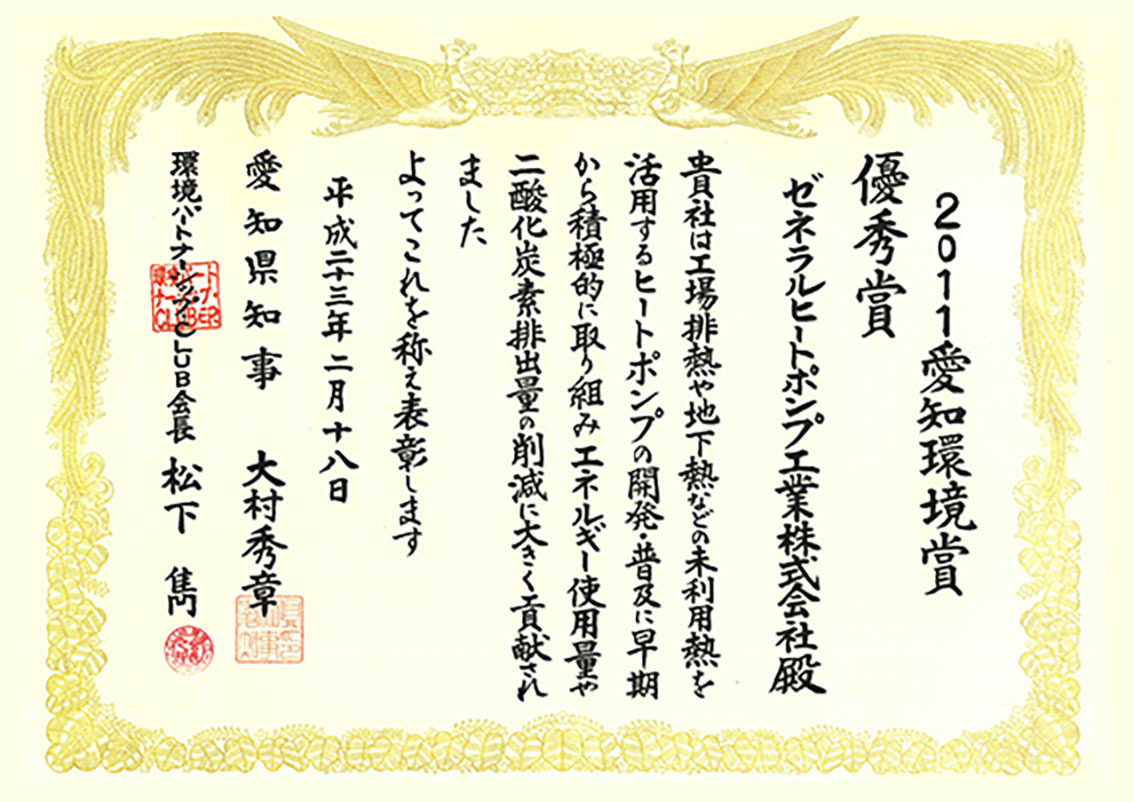 2011愛知環境賞
優秀賞
ゼネラルヒートポンプ工業株式会社殿
貴社は工場排熱や地下熱などの未利用熱を
活用するヒートポンプの開発・普及に早期
から積極的に取り組みエネルギー使用量や
二酸化炭素排出量の削減に大きく貢献され
ました
よってこれを称え表彰します
平成二十三年二月十八日
愛知県知事 大村秀章
環境パートナーシップ・CLUB会長 松下 雋